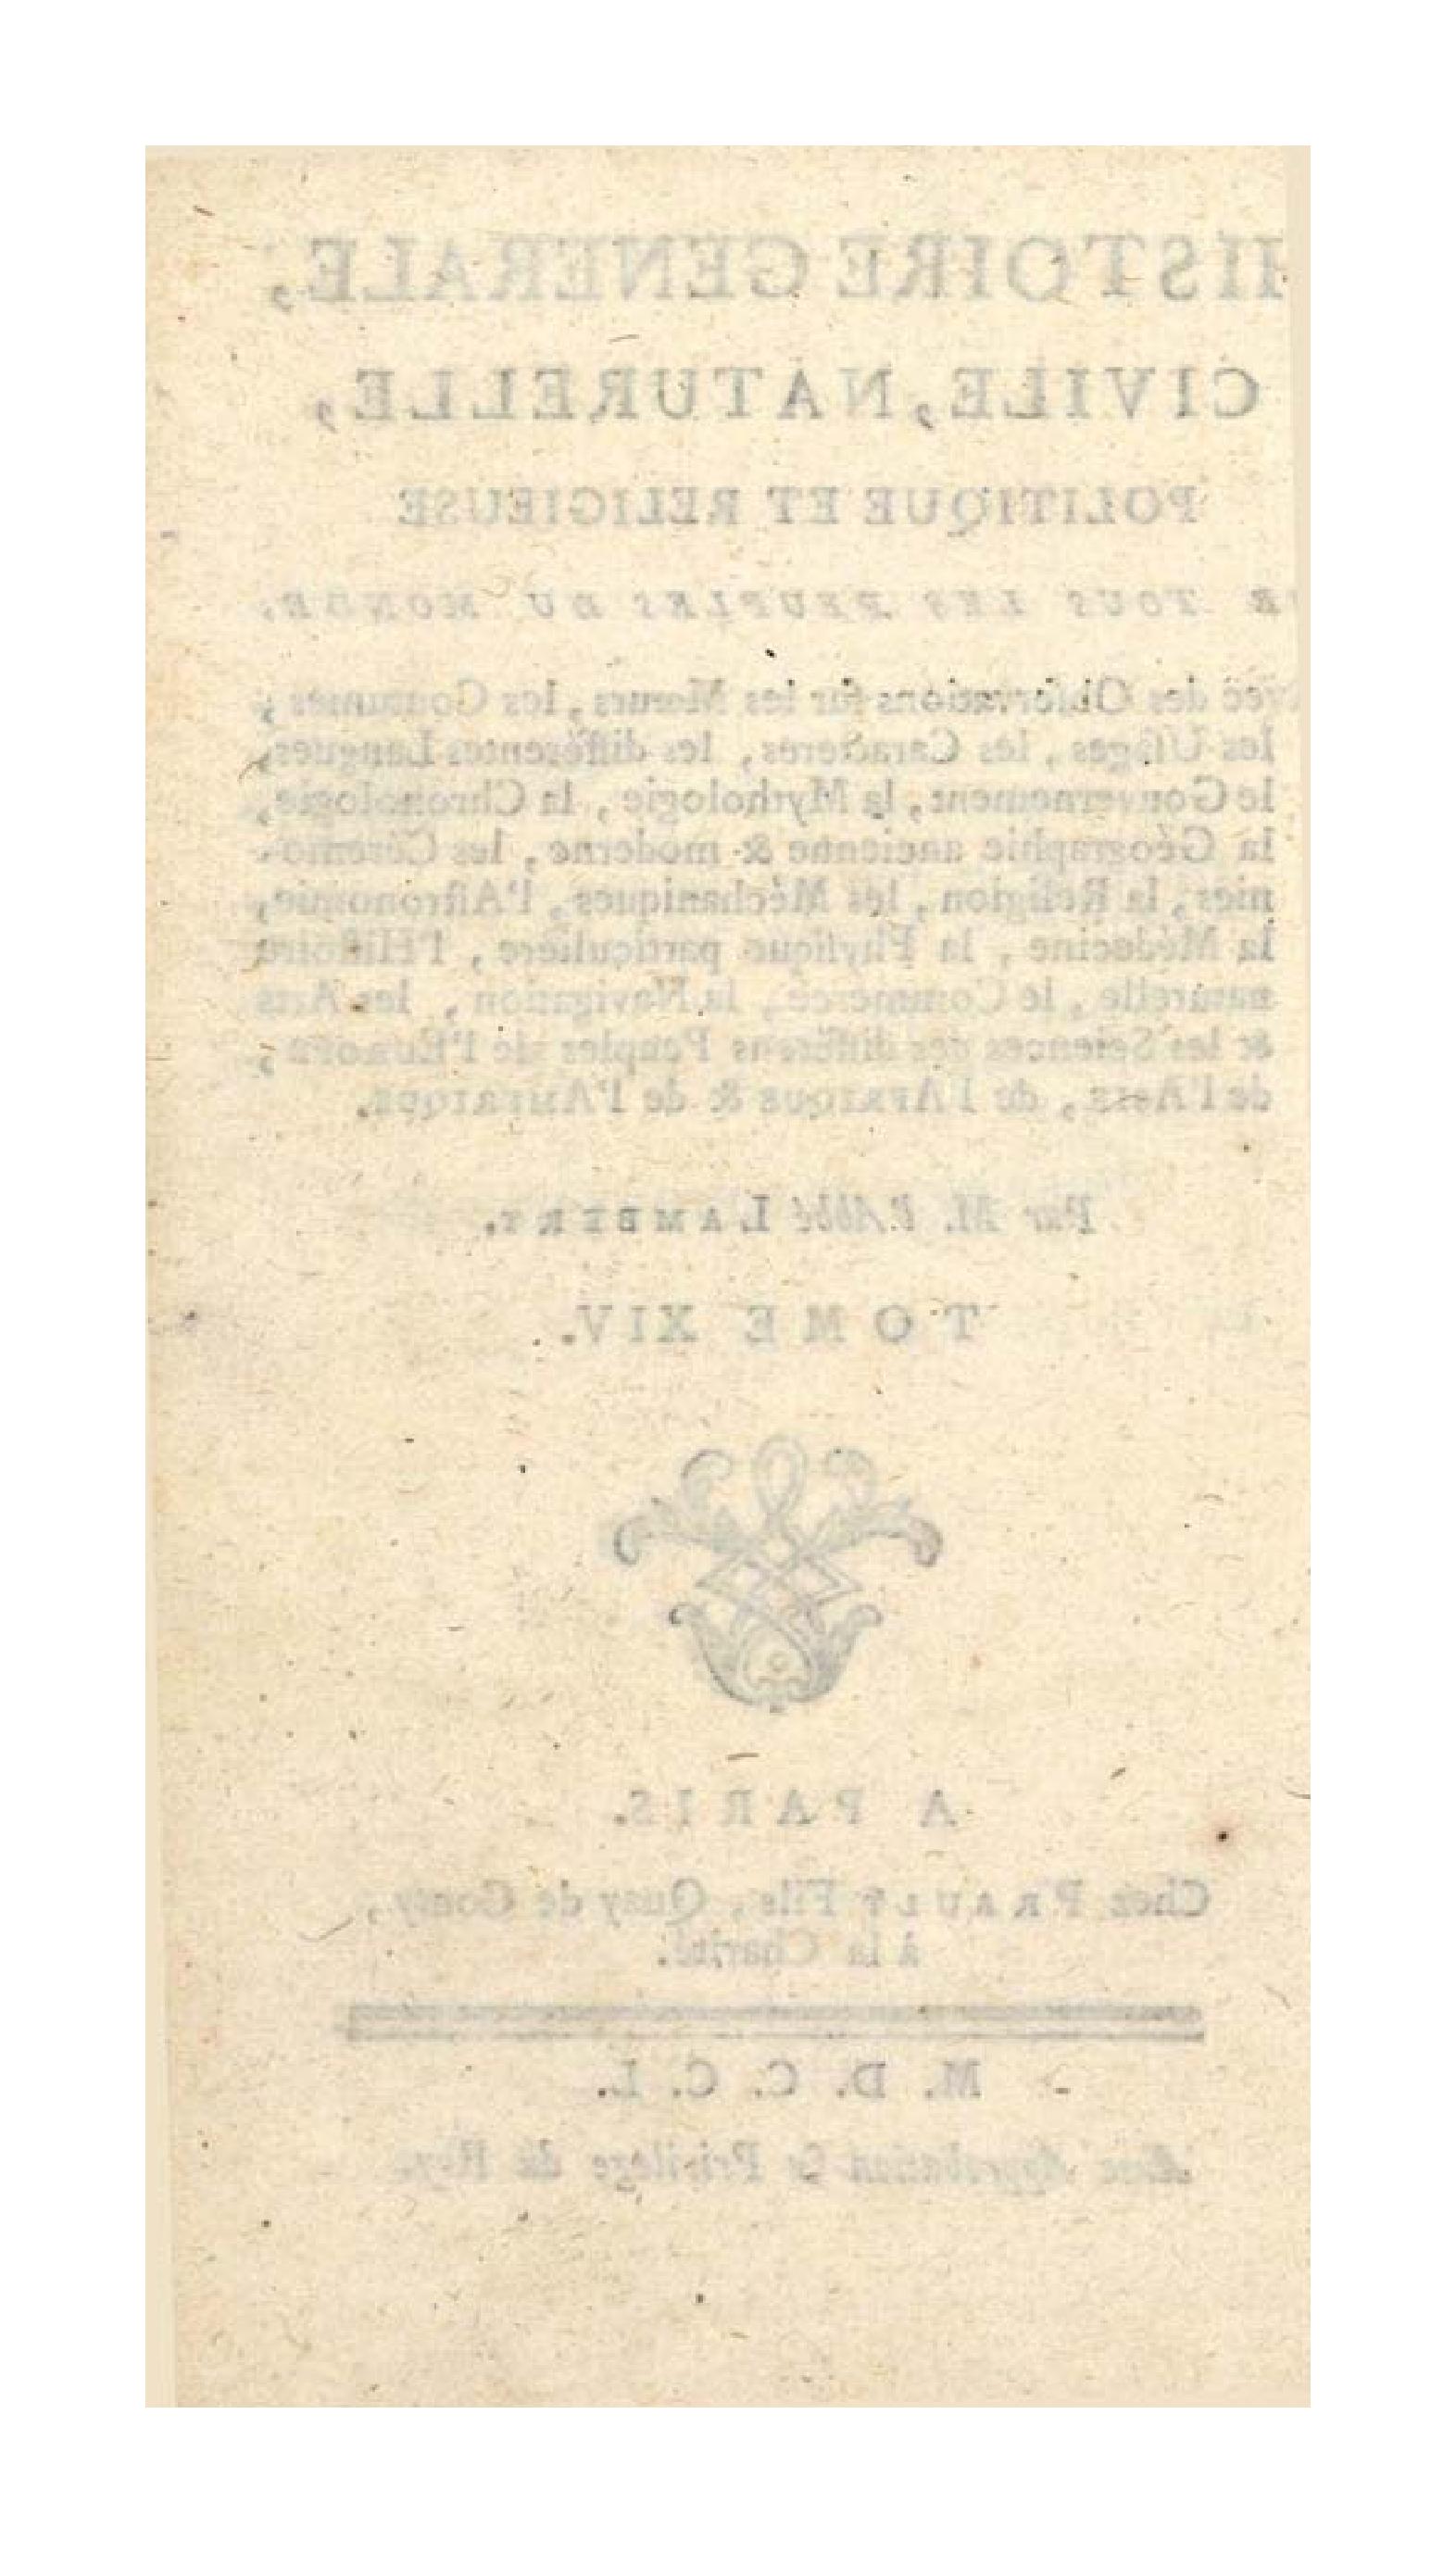 HISTOIRE GENERALE,
CIVILE, NATURELLE,
POLITIQUE ET RELIGIEUSE
DE TOUS LES PEUPLES DU MONDE,
Avec des Observations sur les Mœurs, les Coutumes,
les Usages, les Caracteres, les différentes Langues,
le Gouvernement, la Mythologie, la Chronologie,
la Géographie ancienne & moderne, les Cérémo-
nies, la Religion, les Méchaniques, l'Astronomie,
la Médecine, la Physique particuliere, l'Histoire
naturelle, le Commerce, la Navigation, les Arts
& les Sciences des différens Peuples de l'EUROPE,
de l'ASIE, de l'AFRIQUE & de l'AMERIQUE.
Par M. l'Abbé LAMBERT.
TOME XIV.
A PARIS.
Chez PRAULT Fils, Quay de Conty,
à la Charité.
M. D. C. C. L.
Avec Approbation & Privilége du Roy.